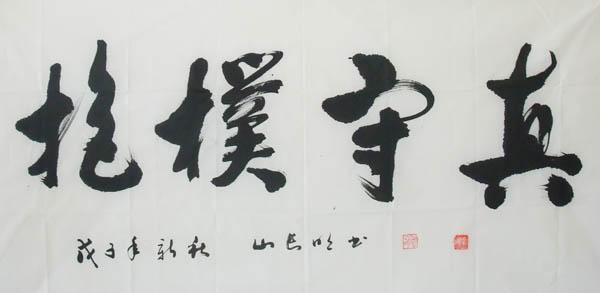 抱樸守真
戊子年新秋 山长明书